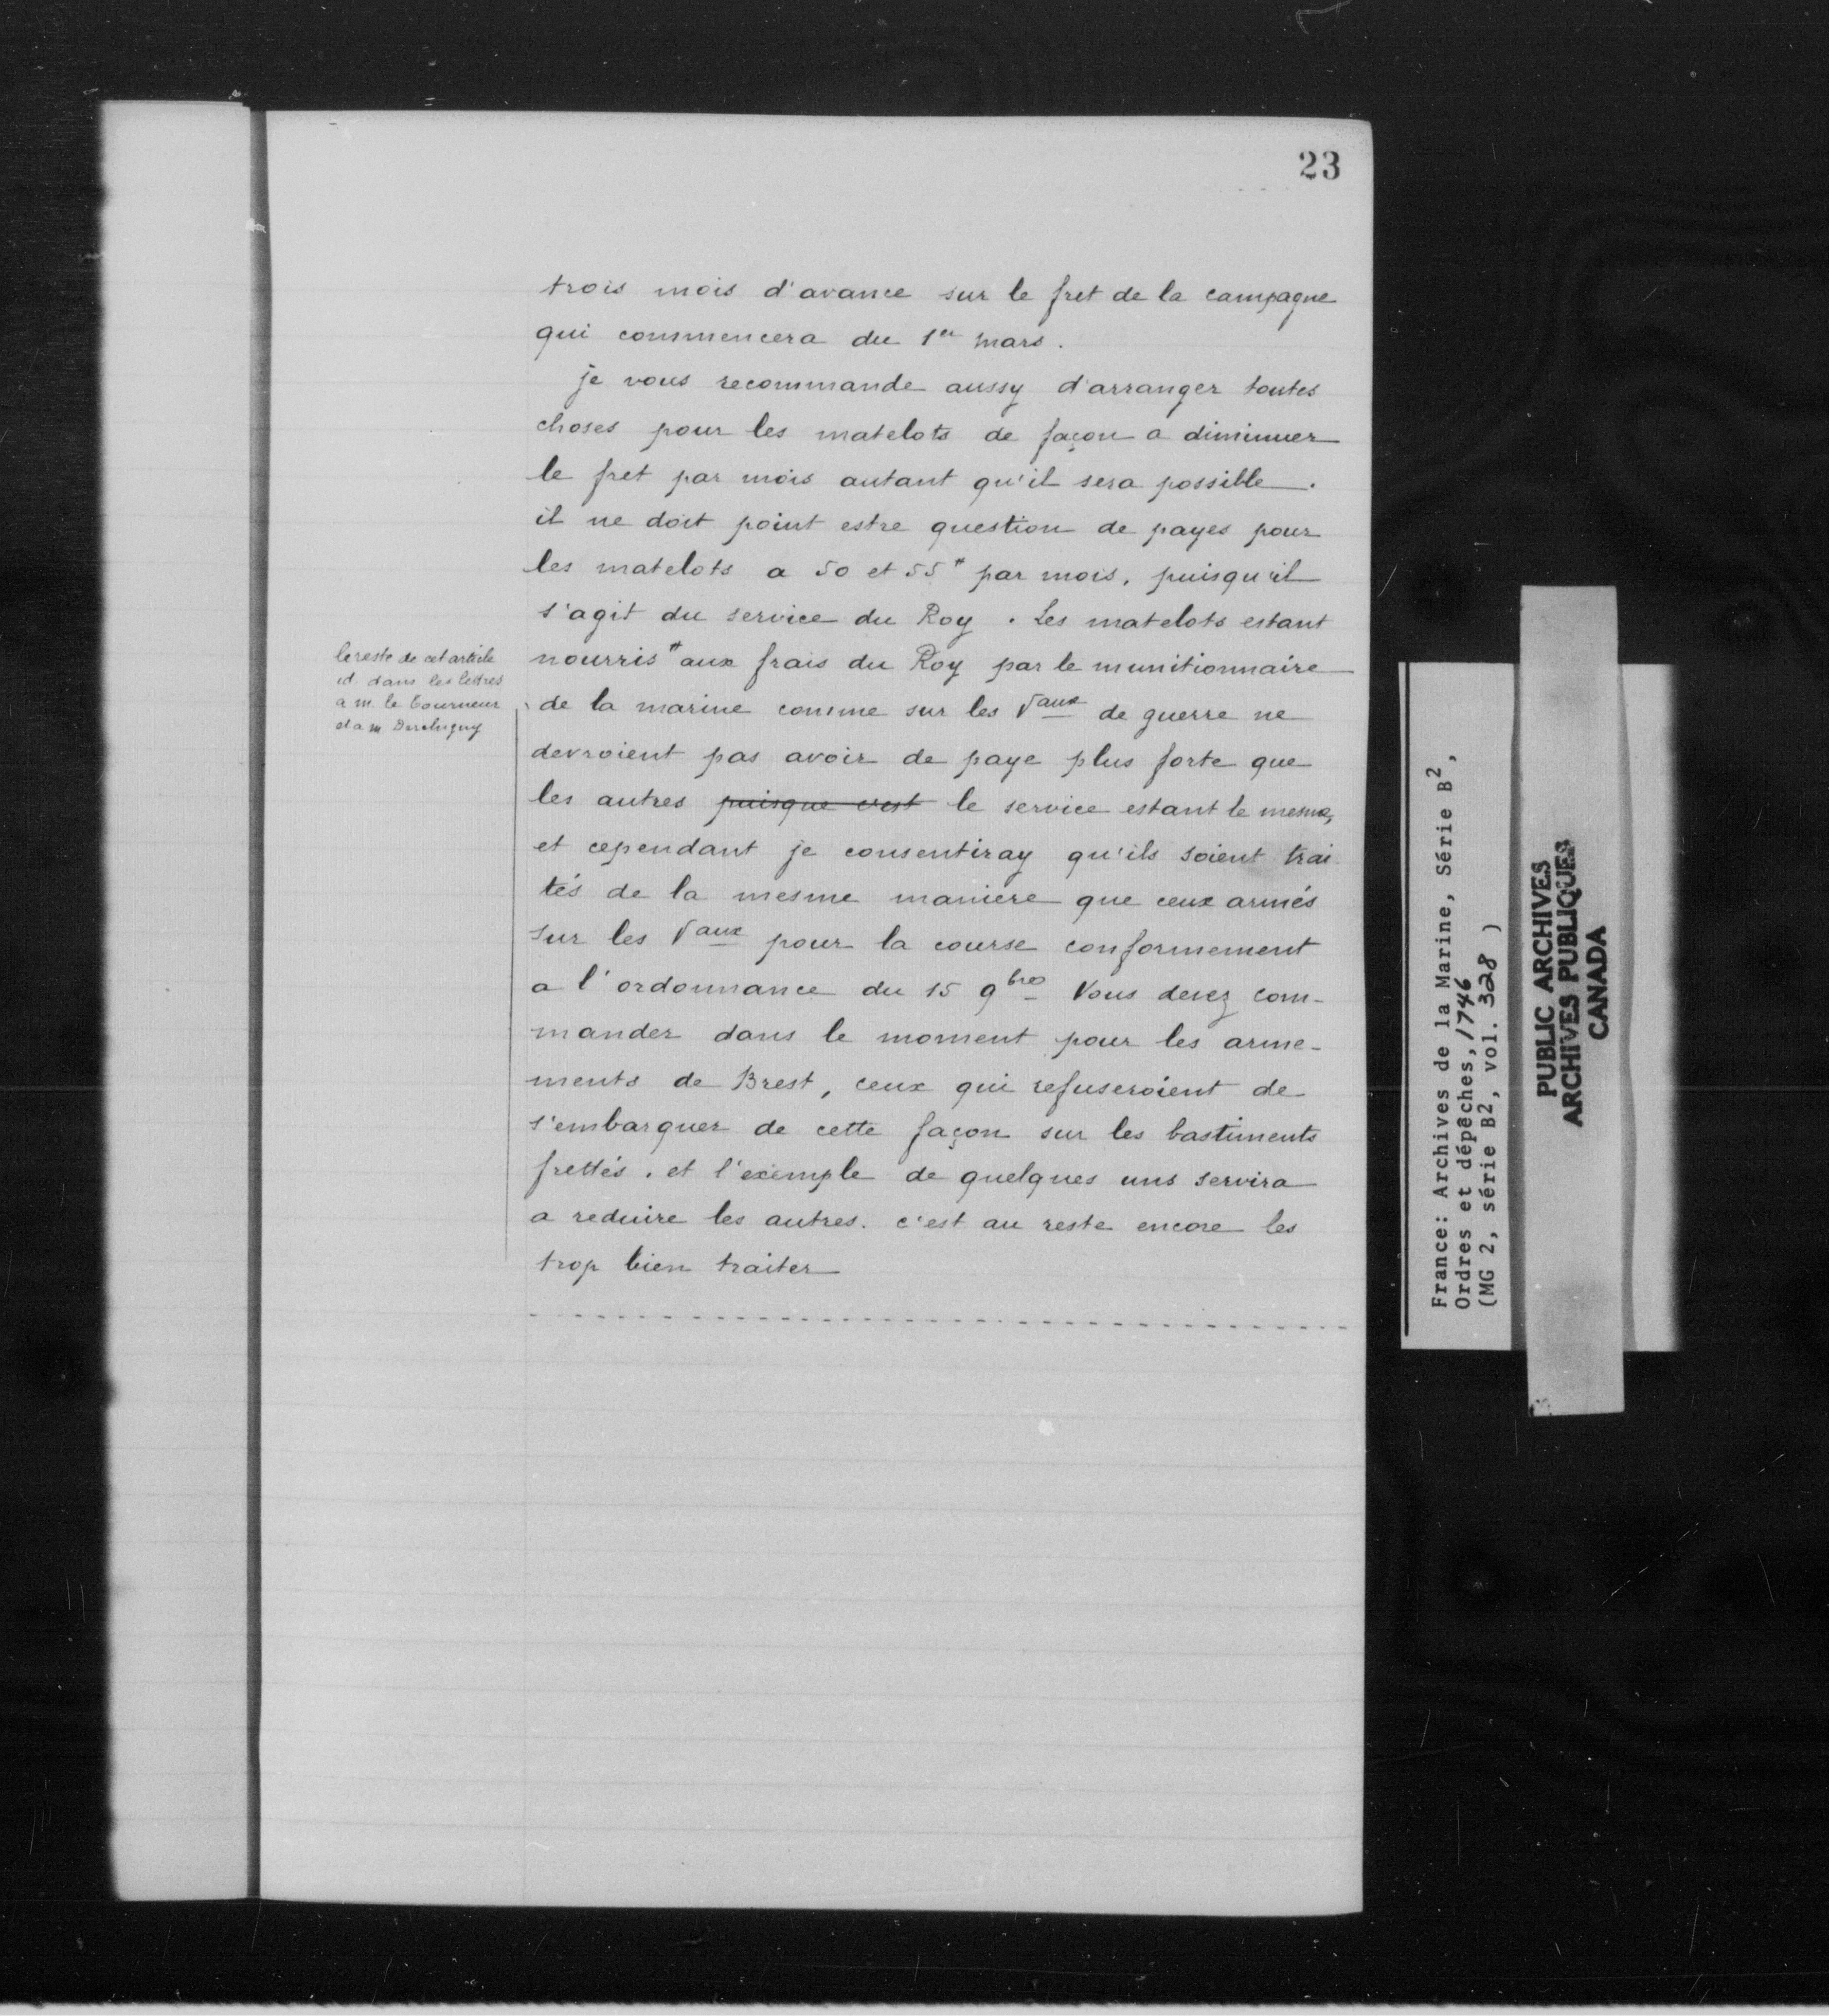 23
trois mois d'avance sur le fret de la campagne
qui commencera du 1er mars.
je vous recommande aussy d'arranger toutes
choses pour les matelots de façon a diminuer
le fret par mois autant qu'il sera possible.
il ne doit point estre question de payes pour
les matelots a 50 et 55# par mois, puisqu'il
s'agit du service du Roy. Les matelots estant
nourris # aux frais du Roy par le munitionnaire
de la marine comme sur les Vaux de guerre ne
devroient pas avoir de paye plus forte que
les autres puisque c'est le service estant le mesme,
et cependant je consentiray qu'ils soient trai
tés de la mesme maniere que ceux armés
sur les Vaux pour la course conformement
a l'ordonnance du 15 9bre Vous devez com-
mander dans le moment pour les arme-
ments de Brest, ceux qui refuseroient de
s'embarquer de cette façon sur les bastiments
frettés. et l'exemple de quelques uns servira
a reduire les autres. c'est au reste encore les
trop bien traiter
le reste de cet article
id. dans les lettres
a m. le Tourneur
et a m
France: Archives de la Marine, Série B2,
Ordres et dépêches, 1746
(MG 2, série B2, vol. 328 )
PUBLIC ARCHIVES
ARCHIVES PUBLIQUES
CANADA